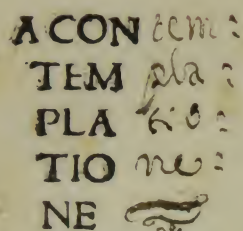 A CON tem:
TEM pla:
PLA tio:
TIO ne:
NE